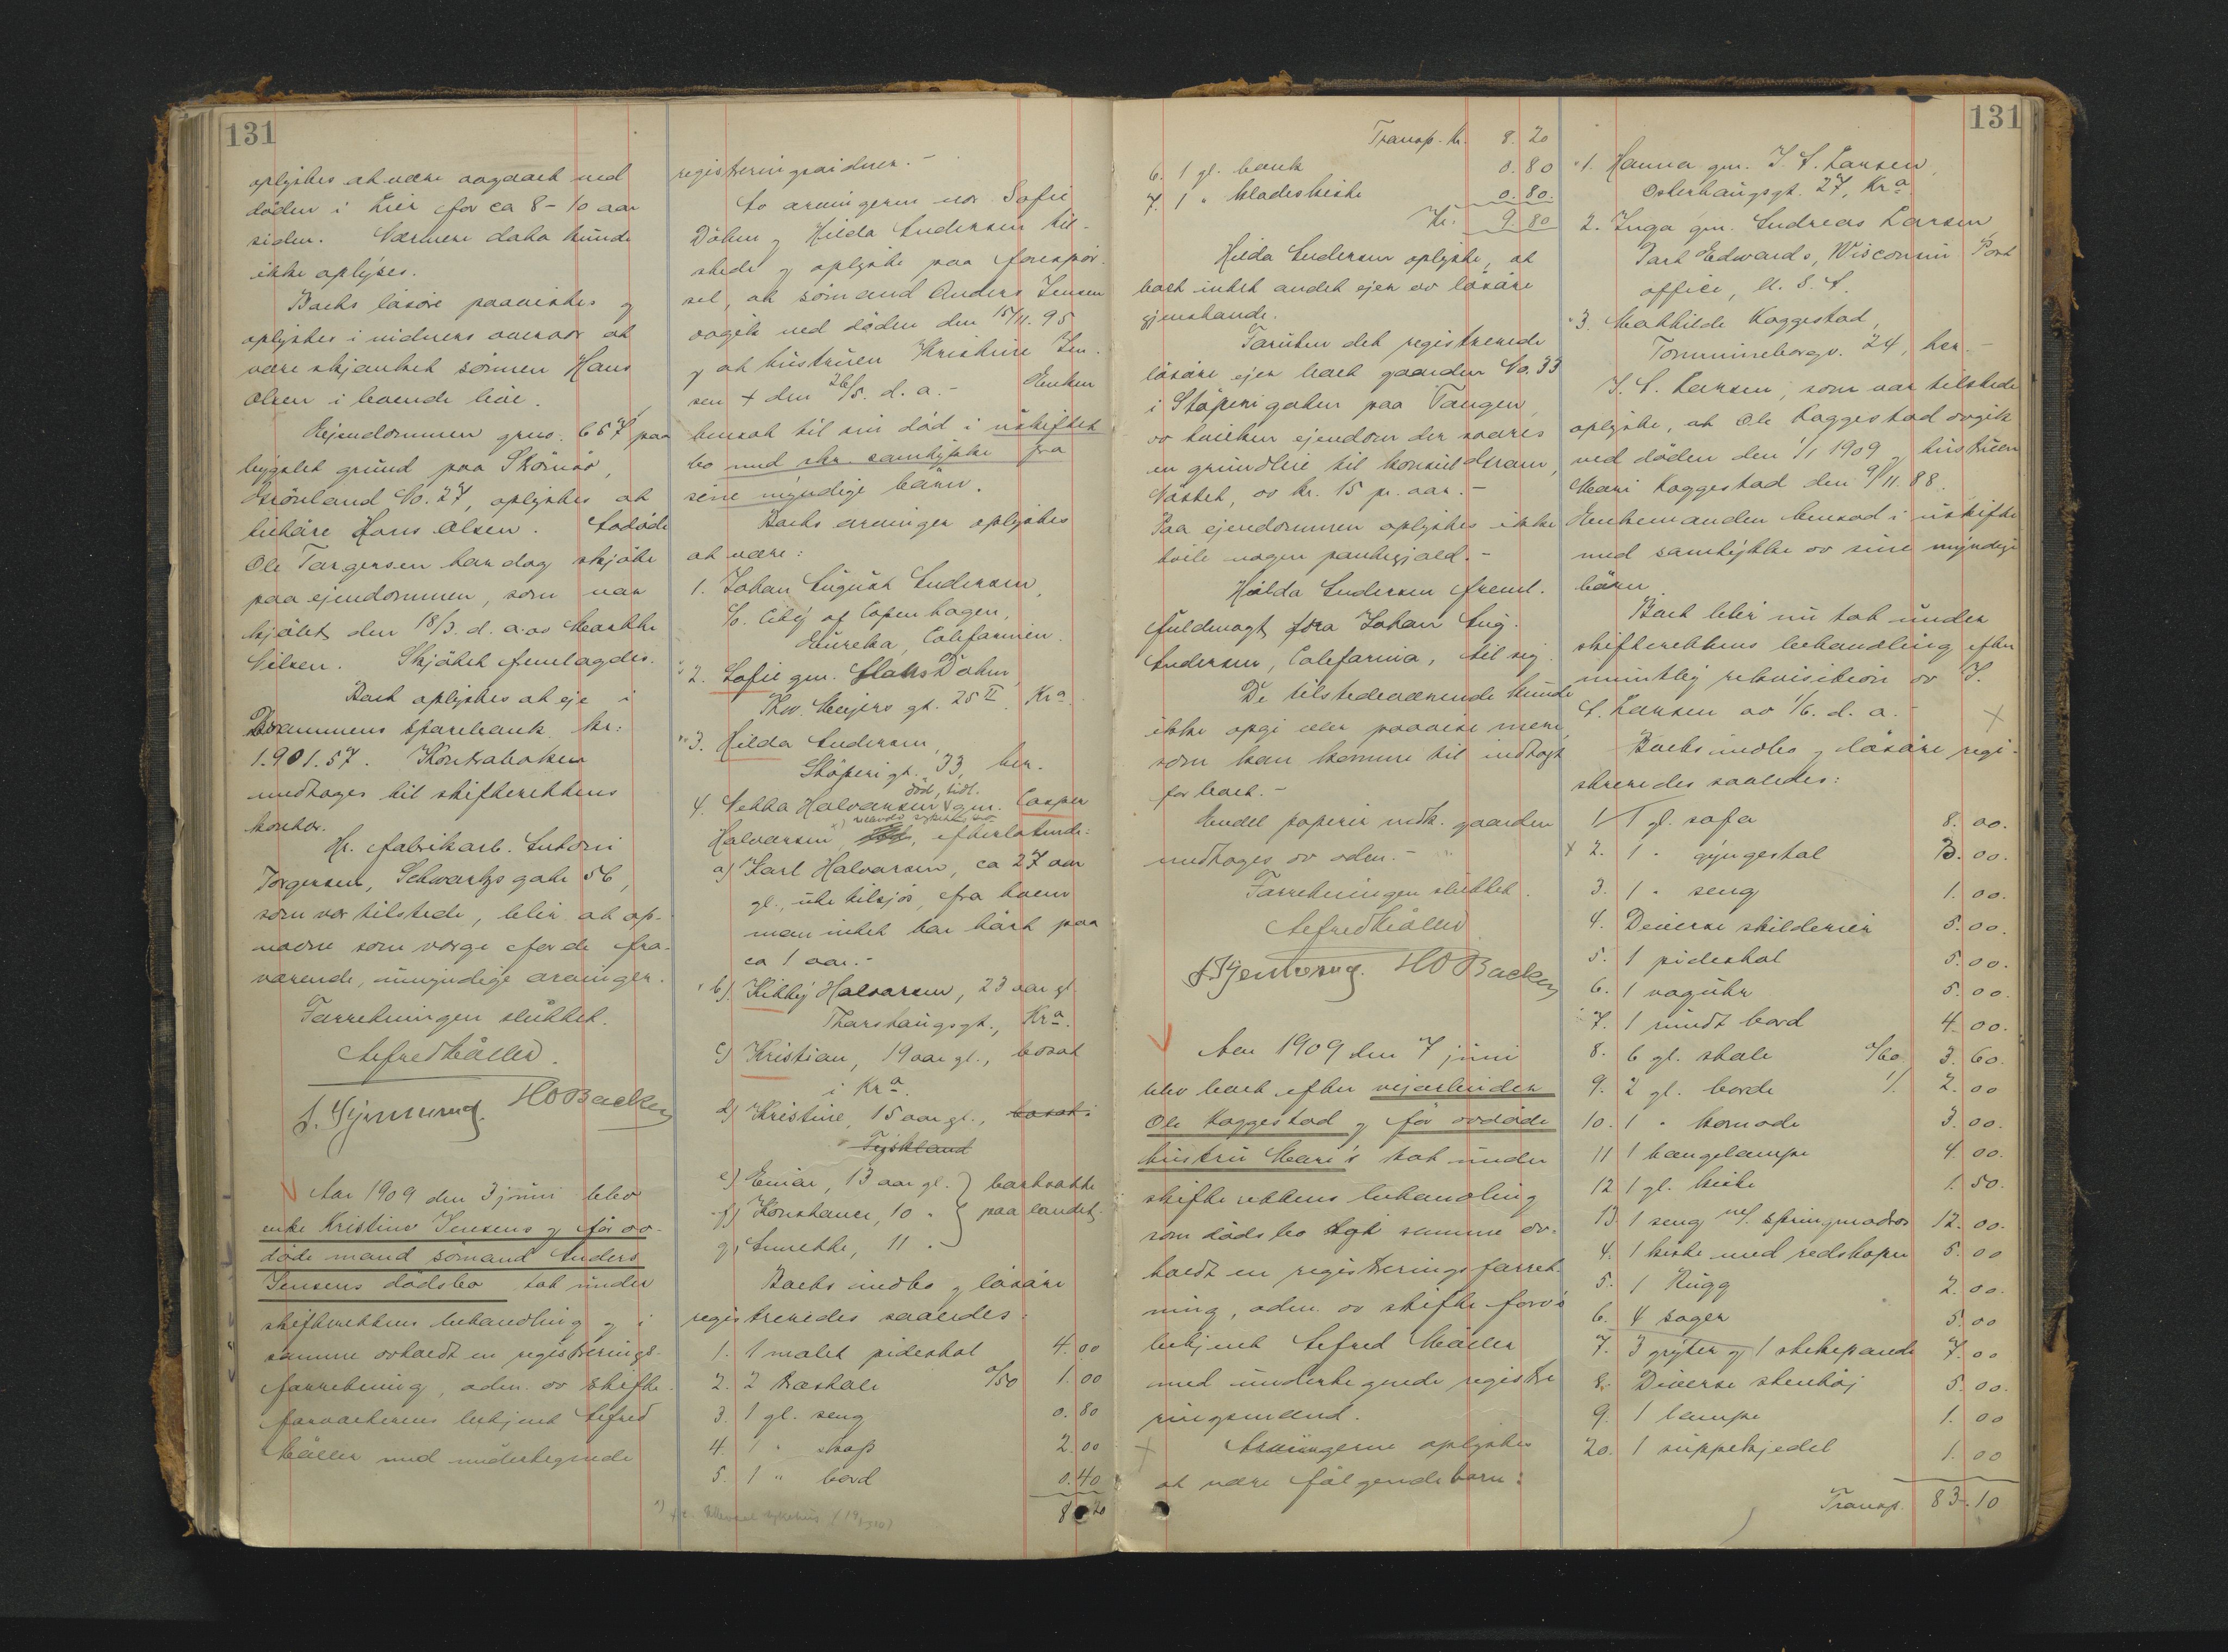 131
oplystes at være avgaaet ved
døden i Lier for ca 8-10 aar
siden. Nærmere data kunde
ikke oplyses.
Boets løsøre paavistes og
oplystes i vidners overvær at
være skjænket sønnen Hans
Olsen i levende live.
Eiendommen grno. 657 paa
bygslet grund paa Strømsø,
Grønland No. 27, oplystes at
tilhøre Hans Olsen. Avdøde
Ole Torgersen har dog skjøte
paa ejendommen, som var
kjøbt den 18/3. d. a. av Marthe
Nilsen. Skjøtet fremlagdes.
Boet oplystes at eje i
Drammens Sparebank kr:
1.901.57. Kontraboken
medtages til skifterettens
kontor.
Hr. fabrikarb. Anton
Torgersen, Schwartzgate 56,
som var tilstede, blir at op-
nævne som verge for de fra-
værende, umyndige arvinger.
Forretningen sluttet.
Alfred Møller.
HO Backen
Aar 1909 den 3 juni blev
enke Kristine Jensens og før av-
døde mand sømand Anders
Jensens dødsbo tat under
skifterettens behandling og i
samme avholdt en registrerings-
forretning, adm. av skifte-
forvalterens betjent Alfred
Møller med undertegnede
registreringsvidner.-
Av arvingerne var Sofie
Døhm og Hilda Andersen til-
stede og oplyste paa forespør-
sel, at sømand Anders Jensen
avgik ved døden den 15/11. 95
og at hustruen Kristine Jen-
sen + den 26/5. d. a.- Enken
hensat til sin død i uskiftet
bo med skr. samtykke fra
sine myndige børn.
Boets arvinger oplystes
at være:
1. Johan August Andersen,
S/S. City of Copenhagen,
Eureka, Californien.
2. Sofie gm. Hans Døhm,
Thv. Meyers gt. 25 II Kra.
3. Hilda Andersen,
Støperigt. 33, her.
død, tidl.
4. Netta Halvorsen gm. Casper
Halvorsen, efterlatende:
a) Karl Halvorsen, ca 27 aar
gl., ute tilsjøs, fra hvem
man intet har hørt paa
ca 1 aar.-
b) Kitty Halvorsen, 23 aar gl.
Thorshaugsgt., Kra.
c) Kristian, 19 aar gl., bosat
i Kra.
d) Kristine, 15 aar gl., bosat i
Tyskland
e) Einar, 13 aar gl. } bortsatte
f) Konstance, 10 " } paa landet.
g) Annette, 11 "
Boets indbo og løsøre
registreredes saaledes:
1. 1 malet pidestal 4.00
2. 2 træstole o/50 1.00
3. 1 gl. seng 0.80
4. 1 " skap 2.00
5. 1 " bord 0.40
8.20
131
Transp. kr. 8.20
6. 1 gl. bænk 0.80
7. 1 " klædeskiste 0.80.
Kr. 9.80
Hilda Andersen oplyste, at
boet intet andet ejer av løsøre
gjenstande.
Foruten det registrerede
løsøre ejer boet gaarden No. 33
i Støperigaten paa Tangen,
av hvilken ejendom der svares
en grundleie til konsul Aram,
Næstet, av kr. 15 pr. aar.-
Paa ejendommen oplystes ikke
hvile nogen pantegjæld.-
Hilda Andersen freml.
fuldmagt fra Johan Aug.
Andersen, California, til sig.
De tilstedeværende kunde
ikke opgi eller paavise mere,
som kan komme til indtægt
for boet.-
Endel papirer vedk. gaarden
medtages av adm.-
Forretningen sluttet.
Alfred Møller
HO Backen
Aar 1909 den 7 juni
blev boet efter vejarbeider
Ole Kaggestad og før avdøde
hustru Mari's tat under
skifterettens behandling
som dødsbo og i samme av-
holdt en registreringsforret-
ning, adm. av skifteforv's
betjent Alfred Møller
med undertegnede registre
ringsmænd.
Arvingerne oplystes
at være følgende børn:
1. Hanna gm. J. A. Larsen,
Osterhaugsgt. 27, Kra
2. Inga gm. Andreas Larsen,
Port Edwards, Wisconsin Post
office, U. S. A.
3. Mathilde Kaggestad,
Tomineborgv. 24, her.-
J. A. Larsen, som var tilstede
oplyste, at Ole Kaggestad avgik
ved døden den 1/1 1909 og hustruen
Mari Kaggestad den 9/11. 88.
Enkemanden hensad i uskifte
med samtykke av sine myndige
børn.
Boet blir nu tat under
skifterettens behandling efter
mundtlig rekvisition av J.
A. Larsen av 1/6. d. a.-
Boets indbo og løsøre regi-
streredes saaledes:
1. 1 gl. sofa 8.00.
2. 1 " gyngestol 3.00.
3. 1 " seng 1.00.
4. Diverse skilderier 5.00.
5. 1 pidestal 5.00.
6. 1 væguhr 5.00.
7. 1 rundt bord 4.00.
8. 6 gl. stole o/60 3.60.
9. 2 gl. borde 1/. 2.00
10. 1 " komode 3.00.
11 1 hængelampe 4.00.
12 1 gl. kiste 1.50.
13 1 seng m/. springmadras 12.00.
4. 1 kiste med redskaper 5.00
5. 1 Rugg 2.00.
6. 4 sager 5.00
7. 3 gryter og 1 stekepande 7.00
8. Diverse stentøj 5.00.
9. 1 lampe 1.00
20. 1 suppekjedel 1.00
Transp. 83.10